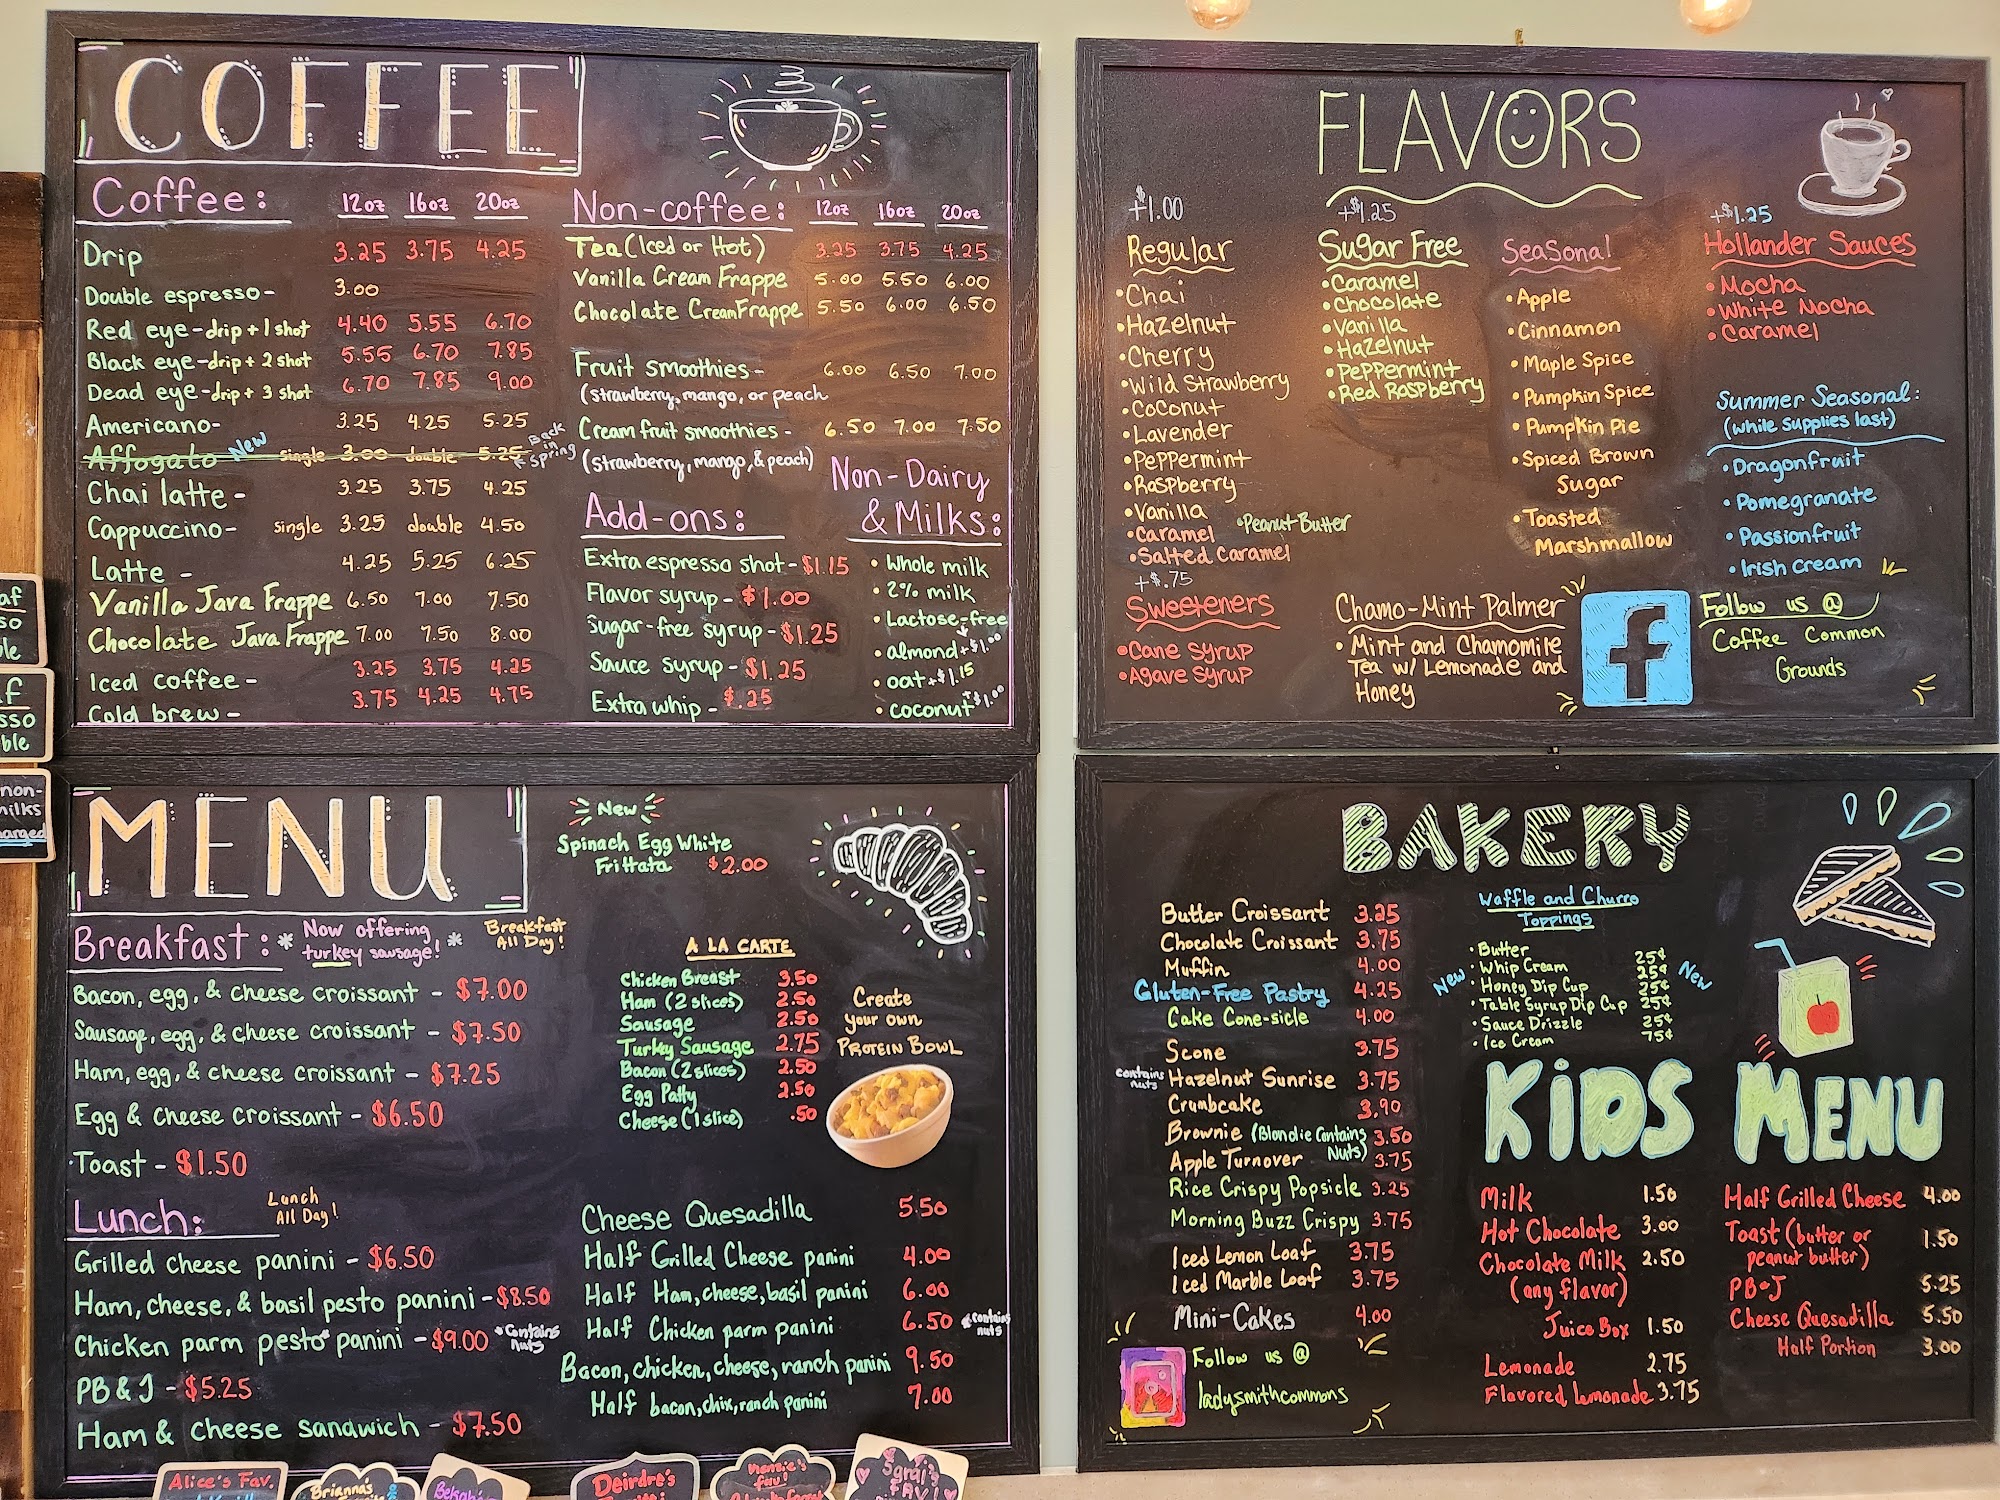 COFFEE
Coffee: 12oz 16oz 20oz
Drip 3.25 3.75 4.25
Double espresso- 3.00
Red eye-drip + 1 shot 4.40 5.55 6.70
Black eye-drip + 2 shot 5.55 6.70 7.85
Dead eye-drip + 3 shot 6.70 7.85 9.00
Americano- 3.25 4.25 5.25
Affogato New single 3.00 double 5.25 Back in Spring
Chai latte - 3.25 3.75 4.25
Cappuccino- single 3.25 double 4.50
Latte - 4.25 5.25 6.25
Vanilla Java Frappe 6.50 7.00 7.50
Chocolate Java Frappe 7.00 7.50 8.00
Iced coffee - 3.25 3.75 4.25
Cold brew - 3.75 4.25 4.75
Non-coffee: 12oz 16oz 20oz
Tea (Iced or Hot) 3.25 3.75 4.25
Vanilla Cream Frappe 5.00 5.50 6.00
Chocolate Cream Frappe 5.50 6.00 6.50
Fruit smoothies - 6.00 6.50 7.00
(strawberry, mango, or peach
Cream fruit smoothies - 6.50 7.00 7.50
(strawberry, mango, & peach)
Add-ons:
Extra espresso shot - $1.15
Flavor syrup - $1.00
Sugar-free syrup - $1.25
Sauce syrup - $1.25
Extra whip - $.25
Non-Dairy
& Milks:
• Whole milk
• 2% milk
• Lactose-free
• almond +$1.00
• oat +$1.15
• coconut +$1.00
FLAVORS
+$1.00
Regular
• Chai
• Hazelnut
• Cherry
• Wild Strawberry
• Coconut
• Lavender
• Peppermint
• Raspberry
• Vanilla
• Caramel • Peanut Butter
• Salted Caramel
+$.75
Sweeteners
• Cane Syrup
• Agave Syrup
+$1.25
Sugar Free
• Caramel
• Chocolate
• Vanilla
• Hazelnut
• Peppermint
• Red Raspberry
Seasonal
• Apple
• Cinnamon
• Maple Spice
• Pumpkin Spice
• Pumpkin Pie
• Spiced Brown
Sugar
• Toasted
Marshmallow
+$1.25
Hollander Sauces
• Mocha
• White Mocha
• Caramel
Summer Seasonal:
(while supplies last)
• Dragonfruit
• Pomegranate
• Passionfruit
• Irish Cream
Chamo-Mint Palmer
• Mint and Chamomile
Tea w/ Lemonade and
Honey
f
Follow us @
Coffee Common
Grounds
MENU
New
Spinach Egg White
Frittata $2.00
Breakfast: * Now offering turkey sausage! *
Breakfast
All Day!
Bacon, egg, & cheese croissant - $7.00
Sausage, egg, & cheese croissant - $7.50
Ham, egg, & cheese croissant - $7.25
Egg & cheese croissant - $6.50
Toast - $1.50
A LA CARTE
Chicken Breast 3.50
Ham (2 slices) 2.50
Sausage 2.50
Turkey Sausage 2.75
Bacon (2 slices) 2.50
Egg Patty 2.50
Cheese (1 slice) .50
Create
your own
PROTEIN BOWL
Lunch: Lunch All Day!
Grilled cheese panini - $6.50
Ham, cheese, & basil pesto panini - $8.50
Chicken parm pesto* panini - $9.00 *contains nuts
PB & J - $5.25
Ham & cheese sandwich - $7.50
Cheese Quesadilla 5.50
Half Grilled Cheese panini 4.00
Half Ham, cheese, basil panini 6.00
Half Chicken parm panini 6.50 *contains nuts
Bacon, chicken, cheese, ranch panini 9.50
Half bacon, chix, ranch panini 7.00
BAKERY
Butter Croissant 3.25
Chocolate Croissant 3.75
Muffin 4.00
Gluten-Free Pastry 4.25
Cake Cone-sicle 4.00
Scone 3.75
contains nuts Hazelnut Sunrise 3.75
Crumbcake 3.90
Brownie (Blondie Contains Nuts) 3.50
Apple Turnover 3.75
Rice Crispy Popsicle 3.25
Morning Buzz Crispy 3.75
Iced Lemon Loaf 3.75
Iced Marble Loaf 3.75
Mini-Cakes 4.00
Follow us @
ladysmithcommons
Waffle and Churro
Toppings
New
New
• Butter 25¢
• Whip Cream 25¢
• Honey Dip Cup 25¢
• Table Syrup Dip Cup 25¢
• Sauce Drizzle 25¢
• Ice Cream 75¢
KiDS MENU
Milk 1.50
Hot Chocolate 3.00
Chocolate Milk 2.50
(any flavor)
Juice Box 1.50
Lemonade 2.75
Flavored lemonade 3.75
Half Grilled Cheese 4.00
Toast (butter or
peanut butter) 1.50
PB&J 5.25
Cheese Quesadilla 5.50
Half Portion 3.00
Alice's Fav.
Brianna's
Deirdre's